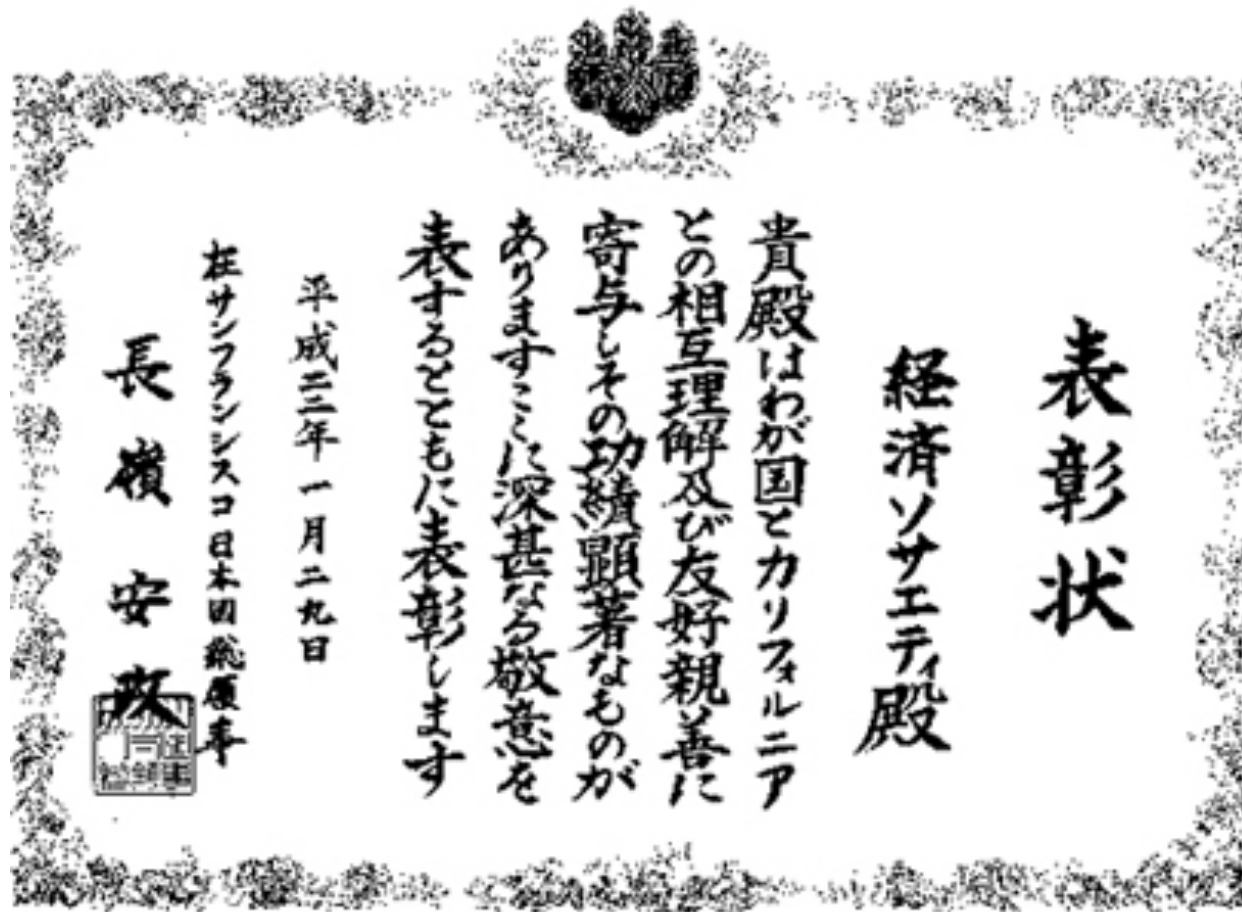 表彰状
経済ソサエティ殿
貴殿はわが国とカリフォルニア
との相互理解及び友好親善に
寄与しその功績顕著なものが
ありますここに深甚なる敬意を
表するとともに表彰します
平成二二年一月二九日
在サンフランシスコ日本国総領事
長嶺安政